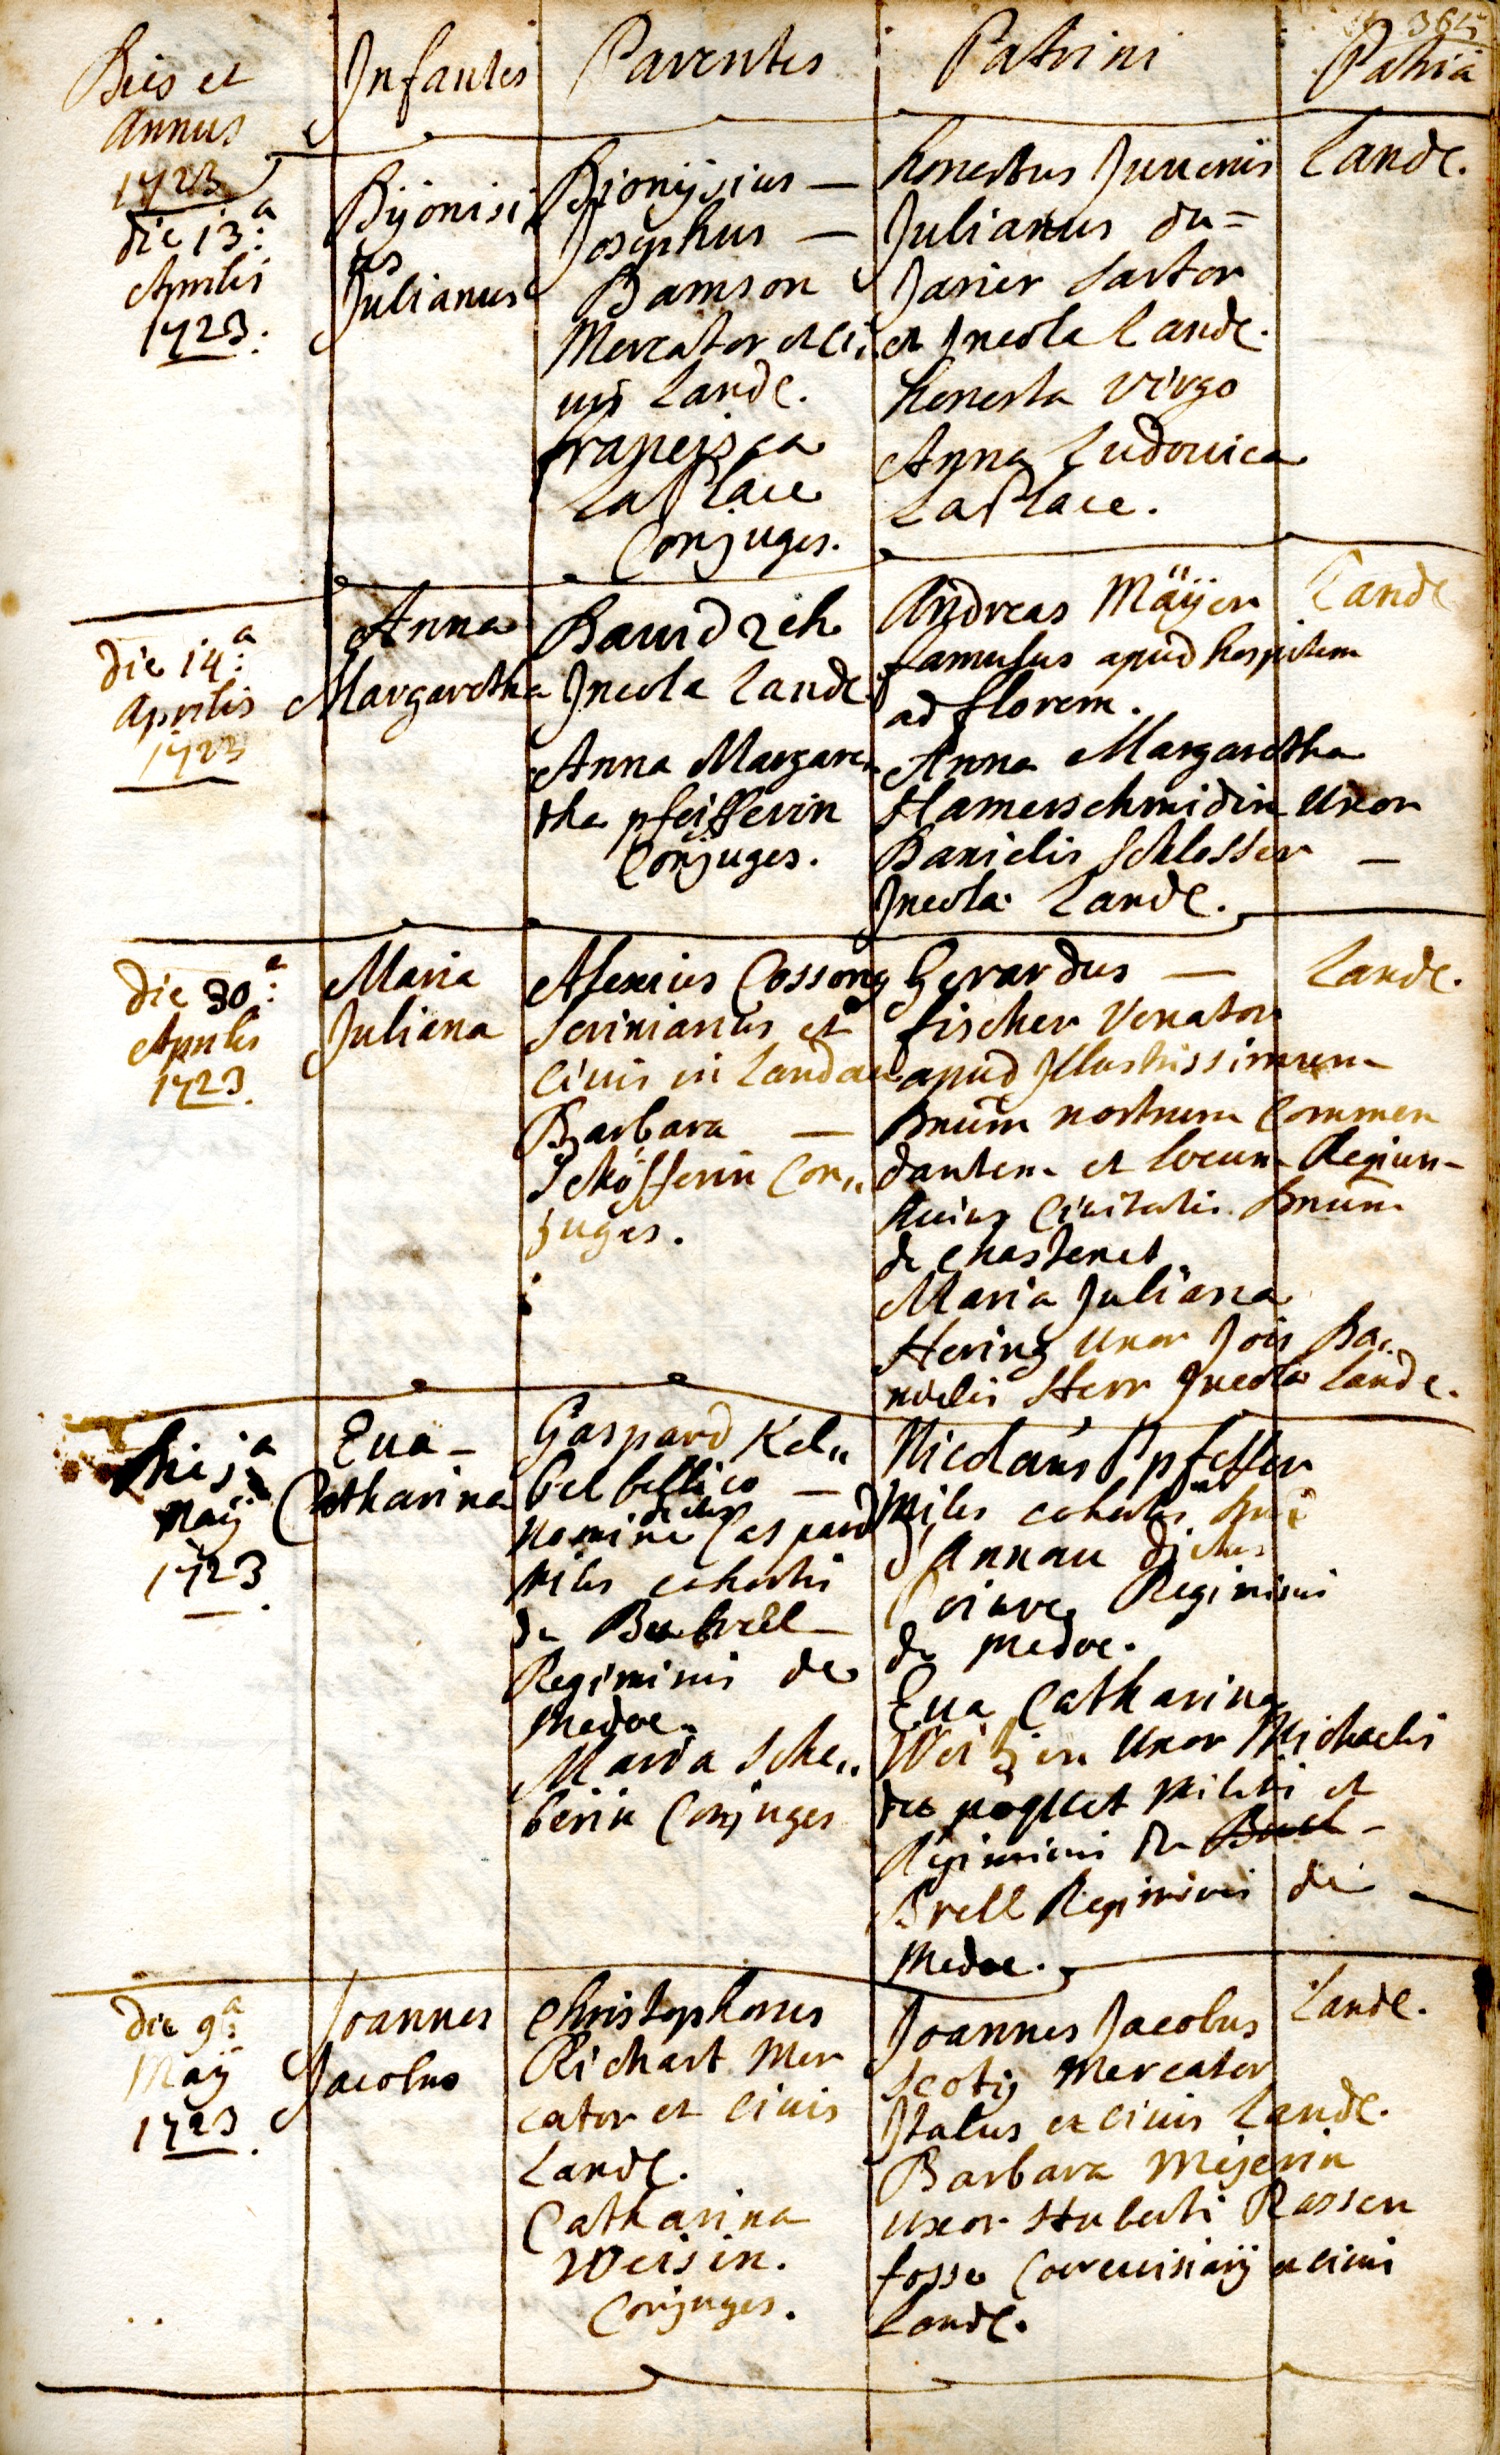 365
Dies et
Annus
1723
Infantes
Parentes
Patrini
Patria
die 13.a
Aprilis
1723.
Dijonisi
us
Julianus
Dionÿsius —
Josephus —
Damson
Mercator et ci,,
uis Landc.
francisca
La Place
Conjuges.
honestus Juuenis
Julianus du=
Janier Sartor
et Incola Landc.
honesta virgo
Anna Ludouica
La Place.
Landc.
die 14.a
Aprilis
1723
Anna
Margaretha
Dauid Zeh
Incola Landc.
Anna Margare,,
tha pfeifferin
Conjuges.
Andreas Mäÿer
famulus apud hospitem
ad florem.
Anna Margaretha
Hamerschmidin Uxor
Danielis Schlosser —
Incola Landc.
Landc
die 30.a
Aprilis
1723.
Maria
Juliana
Alexius Cossong
Scriniarius et
Ciuis in Landau
Barbara —
Schöfferin Con,,
juges.
Gerardus —
fischer Venator
apud Illustrissimum
Dnum nostrum Commen
dantem et locum Regium
huius Ciuitatis Dnum
de Chastenet
Maria Juliana
Hering Uxor Jois Da,,
nielis Herr Incola Landc.
Landc.
Die 5.a
Maÿ
1723
Eua —
Catharina
Gaspard Kel,,
bel bellico —
nomine dictus Caspard
Miles cohortis
de Brell
Regiminis de
Medoc.
Maria Sche,,
berin Conjuges
Nicolaus Ppfeffer
Miles cohortis Dni
d'Annau dictus
Poivre Regiminis
de Medoc.
Eua Catharina
Uxor Michaelis
poquet Militis et
Regiminis de
Brell Regiminis de —
Medoc.
die 9.a
Maÿ
1723.
Joannes
Jacobus
Christophorus
Richart Mer
cator et Ciuis
Landc.
Catharina
Weisin.
Conjuges.
Joannes Jacobus
Scotÿ Mercator
Italus et Ciuis Landc.
Barbara Meÿerin
uxor Huberti Rassen
fosse Coreuisiarÿ et Ciuis
Landc.
Landc.